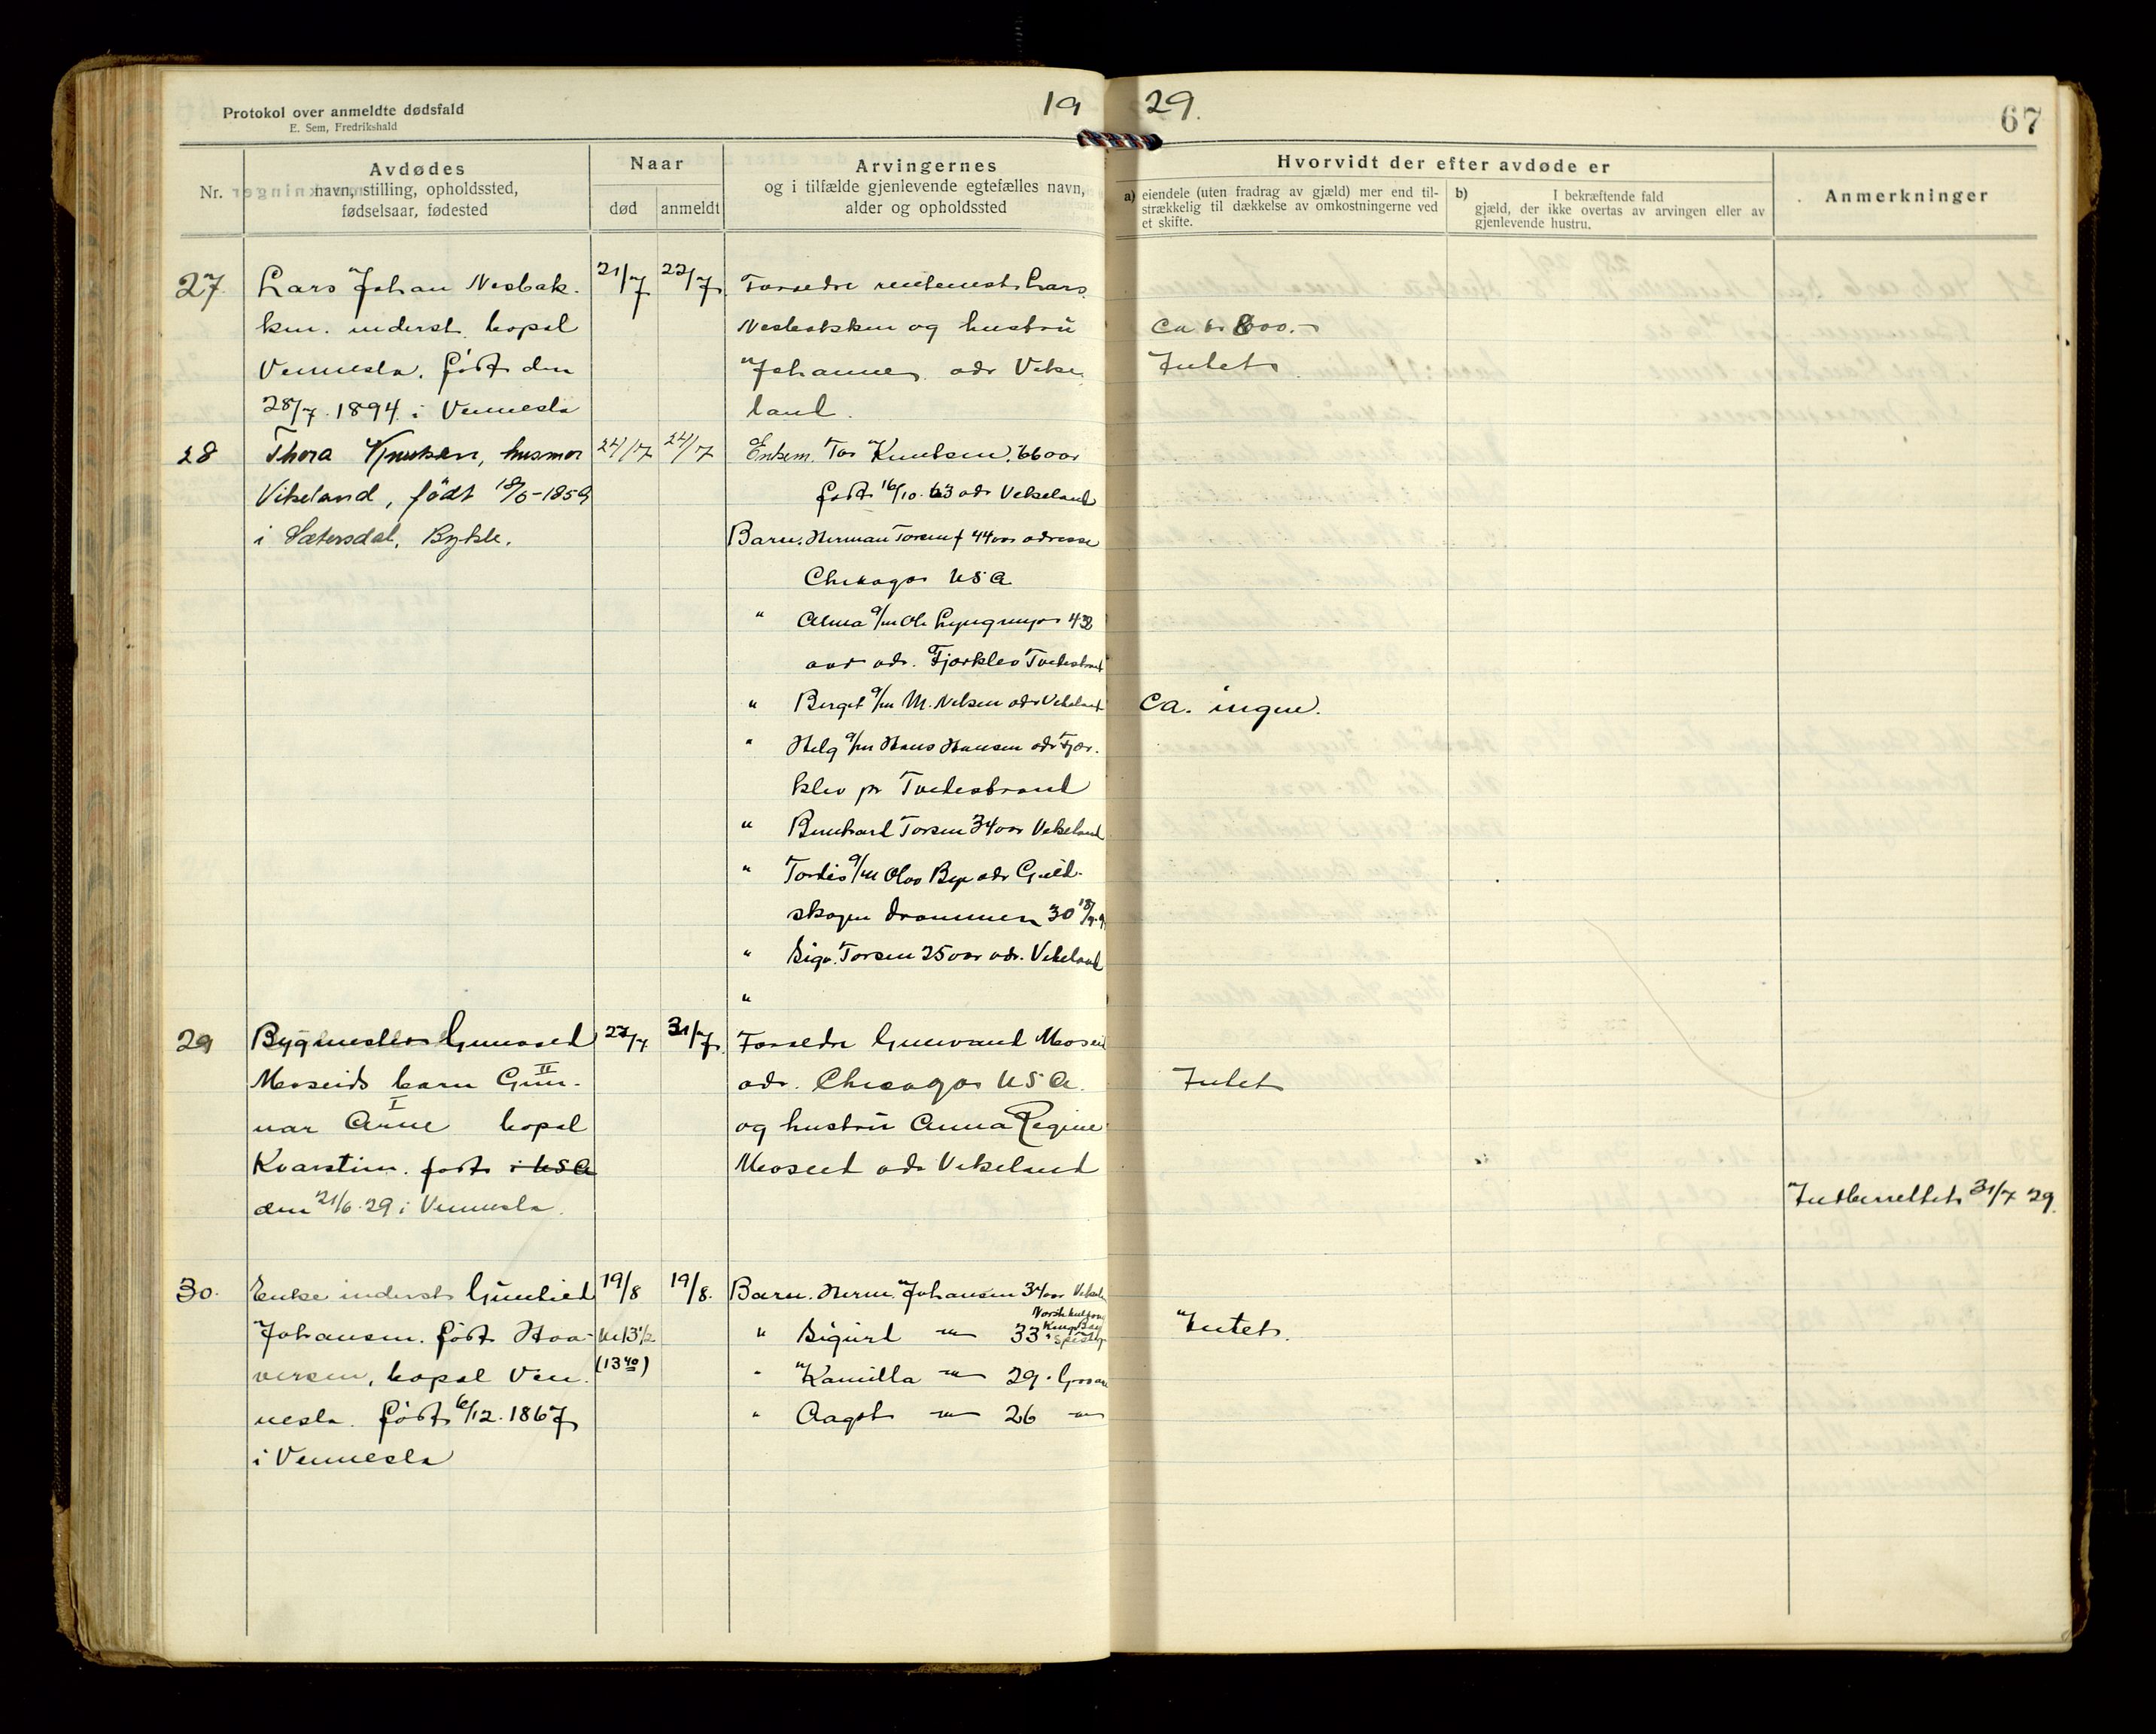 Protokol over anmeldte dødsfald
E. Sem, Fredrikshald
19 29.
67
Nr.
Avdødes
navn, stilling, opholdssted,
fødselsaar, fødested
Naar
død
anmeldt
Arvingernes
og i tilfælde gjenlevende egtefælles navn,
alder og opholdssted
Hvorvidt der efter avdøde er
a) eiendele (uten fradrag av gjæld) mer end til-
strækkelig til dækkelse av omkostningerne ved
et skifte.
b) I bekræftende fald
gjæld, der ikke overtas av arvingen eller av
gjenlevende hustru.
Anmerkninger
27.
Lars Johan Nesbak-
ken. inderst. bopel
Vennesla. født den
28/7. 1894. i Vennesla
21/7
22/7.
Forædre Lars
Nesbakken og hustru
Johanne, adr Vike-
land.
Ca kr 800.-
Intet
28
Thora Knutsen, husmor
Vikeland, födt 18/6-1859
i Sætersdal, Bykle.
24/7
24/7
Enkem. Tor Knutsen. 66 aar
født 16/10.63 adr Vikeland
Barn. Herman Torsen 44 aar adresse
Chicago USA
" Alma g/m Ole 42
aar adr. Fjærklev Tvedestrand
" Berget g/m M. Nelsen adr Vikeland
" Helg g/m Hans Hansen adr Fjær-
klev pr Tvedestrand
" Bernhard Torsen 34 aar Vikeland
" Tordis g/m Olav Bye adr Guld-
skogen Drammen 30
" Sigv. Torsen 25 aar adr. Vikeland
"
Ca. ingen.
29
Bygmester Gunvald
Moseids barn Gun- II
nar Arne I bopel
Kvarstein. født i USA
den 21/6.29 i Vennesla.
27/7
31/7.
Forædre Gunvald Moseid
adr. Chicago USA.
og hustru Anna Regine
Moseid adr Vikeland
Intet
Indberettet 31/7 29.
30.
Enke inderst Gunhild
Johansen. født Haa-
versen, bopel Ven-
nesla. født 6/12. 1867
i Vennesla
19/8
kl 13 1/2
(13 40)
19/8.
Barn. Herm. Johansen 34 aar
" Sigurd —"— 33 " Kings Bay
" Kamilla —"— 29.
" Aagot —"— 26 —"—
Intet.